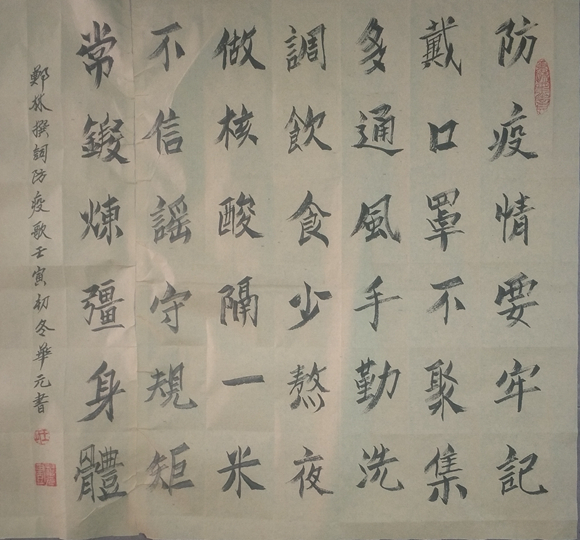 防疫情要牢記
戴口罩不聚集
多通風手勤洗
調飲食少熬夜
做核酸隔一米
不信謠守規矩
常鍛煉彊身體
鄭林撰詞防疫歌壬寅初冬華元書